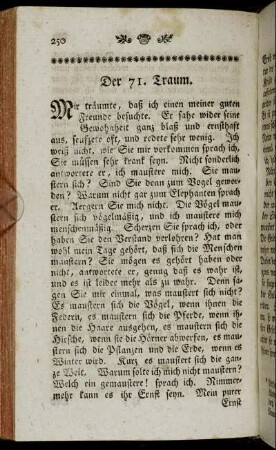 250
Der 71. Traum.
Mir träumte, daß ich einen meiner guten
Freunde besuchte. Er sahe wider seine
Gewohnheit ganz blaß und ernsthaft
aus, seufzete oft, und redete sehr wenig. Ich
weiß nicht, wie Sie mir vorkommen sprach ich,
Sie müssen sehr krank seyn. Nicht sonderlich
antwortete er, ich maustere mich. Sie mau-
stern sich? Sind Sie denn zum Vogel gewor-
den? Warum nicht gar zum Elephanten sprach
er. Aergern Sie mich nicht. Die Vögel mau-
stern sich vögelmäßig, und ich maustere mich
menschenmäßig. Scherzen Sie sprach ich, oder
haben Sie den Verstand verlohren? Hat man
wohl mein Tage gehört, daß sich die Menschen
maustern? Sie mögen es gehört haben oder
nicht, antwortete er, genug daß es wahr ist,
und es ist leider mehr als zu wahr. Denn sa-
gen Sie mir einmal, was maustert sich nicht?
Es maustern sich die Vögel, wenn ihnen die
Federn, es maustern sich die Pferde, wenn ih-
nen die Haare ausgehen, es maustern sich die
Hirsche, wenn sie die Hörner abwerfen, es mau-
stern sich die Pflanzen und die Erde, wenn es
Winter wird. Kurz es maustert sich die gan-
ze Welt. Warum solte ich mich nicht maustern?
Welch ein gemaustere! sprach ich. Nimmer-
mehr kann es ihr Ernst seyn. Mein purer
Ernst